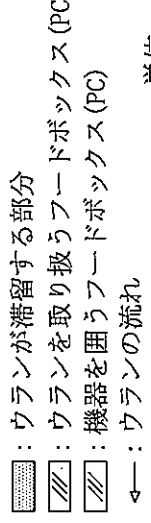 ：ウランが滞留する部分
：ウランを取り扱うフードボックス(PC
：機器を囲うフードボックス(PC)
：ウランの流れ